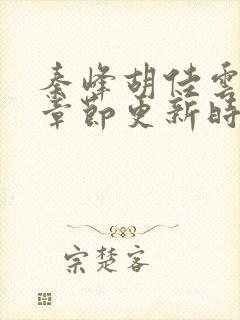 秦峰胡佳雲
章節更新時
宗楚客